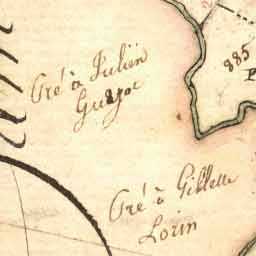 Pré à Julien
Guyot
885
P
Pré à Gillette
Lorin